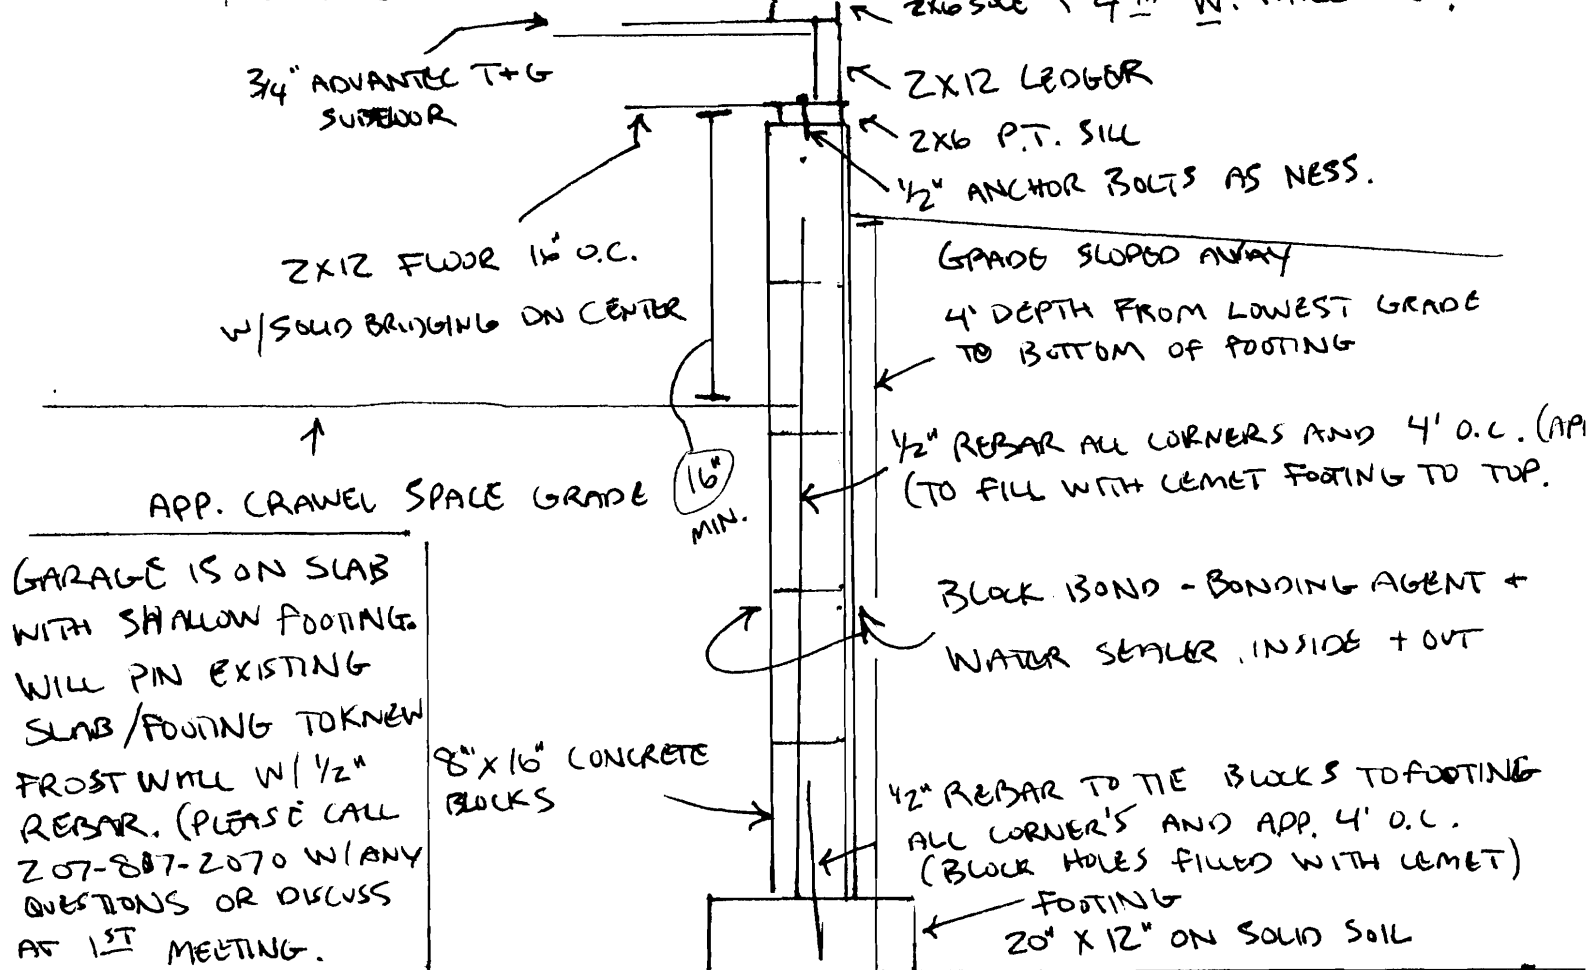 2X6 SOLE
3/4" ADVANTEC T+G
SUBFLOOR
2X12 LEDGER
2X6 P.T. SILL
1/2" ANCHOR BOLTS AS NESS.
2X12 FLOOR 16" O.C.
W/SOLID BRIDGING ON CENTER
GRADE SLOPED AWAY
4' DEPTH FROM LOWEST GRADE
TO BOTTOM OF FOOTING
1/2" REBAR ALL CORNERS AND 4' O.C.
(TO FILL WITH CEMET FOOTING TO TOP.
APP. CRAWEL SPACE GRADE
16"
MIN.
GARAGE IS ON SLAB
WITH SHALLOW FOOTING.
WILL PIN EXISTING
SLAB/FOOTING TO NEW
FROST WALL W/ 1/2"
REBAR. (PLEASE CALL
207-887-2070 W/ANY
QUESTIONS OR DISCUSS
AT 1ST MEETING.
BLOCK BOND - BONDING AGENT +
WATER SEALER INSIDE + OUT
8" X 16" CONCRETE
BLOCKS
1/2" REBAR TO TIE BLOCKS TO FOOTING
ALL CORNER'S AND APP. 4' O.C.
(BLOCK HOLES FILLED WITH CEMET)
FOOTING
20" X 12" ON SOLID SOIL